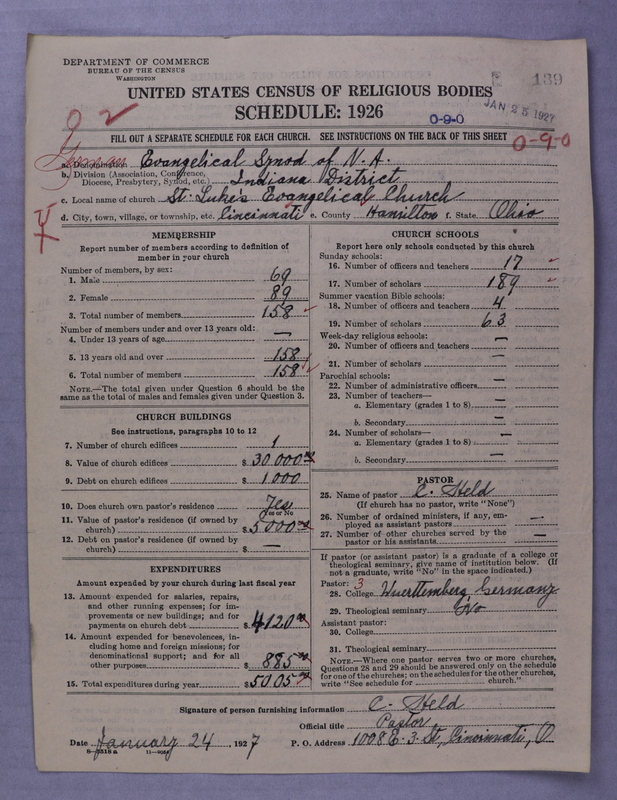 DEPARTMENT OF COMMERCE
BUREAU OF THE CENSUS
WASHINGTON
E 139
UNITED STATES CENSUS OF RELIGIOUS BODIES
JAN 25 1927
SCHEDULE: 1926
0-9-0
0 2
FILL OUT A SEPARATE SCHEDULE FOR EACH CHURCH. SEE INSTRUCTIONS ON THE BACK OF THIS SHEET
0-9-0
German
a. Denomination Evangelical Synod of N. A.
b. Division (Association, Conference, Diocese, Presbytery, Synod, etc.) Indiana District
c. Local name of church St. Luke's Evangelical Church
d. City, town, village, or township, etc. Cincinnati e. County Hamilton f. State Ohio
MEMBERSHIP
Report number of members according to definition of member in your church
Number of members, by sex:
1. Male 69
2. Female 89
3. Total number of members 158
Number of members under and over 13 years old:
4. Under 13 years of age —
5. 13 years old and over 158
6. Total number of members 158
NOTE.—The total given under Question 6 should be the same as the total of males and females given under Question 3.
CHURCH BUILDINGS
See instructions, paragraphs 10 to 12
7. Number of church edifices 1
8. Value of church edifices $ 30 000
9. Debt on church edifices $ 1 000
10. Does church own pastor's residence Yes
Yes or No
11. Value of pastor's residence (if owned by church) $ 5 000
12. Debt on pastor's residence (if owned by church) $ —
EXPENDITURES
Amount expended by your church during last fiscal year
13. Amount expended for salaries, repairs, and other running expenses; for improvements or new buildings; and for payments on church debt $ 4120
14. Amount expended for benevolences, including home and foreign missions; for denominational support; and for all other purposes $ 885
15. Total expenditures during year $ 5005
CHURCH SCHOOLS
Report here only schools conducted by this church
Sunday schools:
16. Number of officers and teachers 17
17. Number of scholars 189
Summer vacation Bible schools:
18. Number of officers and teachers 4
19. Number of scholars 63
Week-day religious schools:
20. Number of officers and teachers —
21. Number of scholars —
Parochial schools:
22. Number of administrative officers —
23. Number of teachers—
a. Elementary (grades 1 to 8) —
b. Secondary —
24. Number of scholars—
a. Elementary (grades 1 to 8) —
b. Secondary —
PASTOR
25. Name of pastor C. Held
(If church has no pastor, write "None")
26. Number of ordained ministers, if any, employed as assistant pastors —
27. Number of other churches served by the pastor or his assistants —
If pastor (or assistant pastor) is a graduate of a college or theological seminary, give name of institution below. (If not a graduate, write "No" in the space indicated.)
Pastor: 3
28. College Wuerttemberg Germany
29. Theological seminary No
Assistant pastor:
30. College
31. Theological seminary
NOTE.—Where one pastor serves two or more churches, Questions 28 and 29 should be answered only on the schedule for one of the churches; on the schedules for the other churches, write "See schedule for church."
Signature of person furnishing information C. Held
Official title Pastor
Date January 24, 1927 P. O. Address 1008 E. 3. St, Cincinnati, O